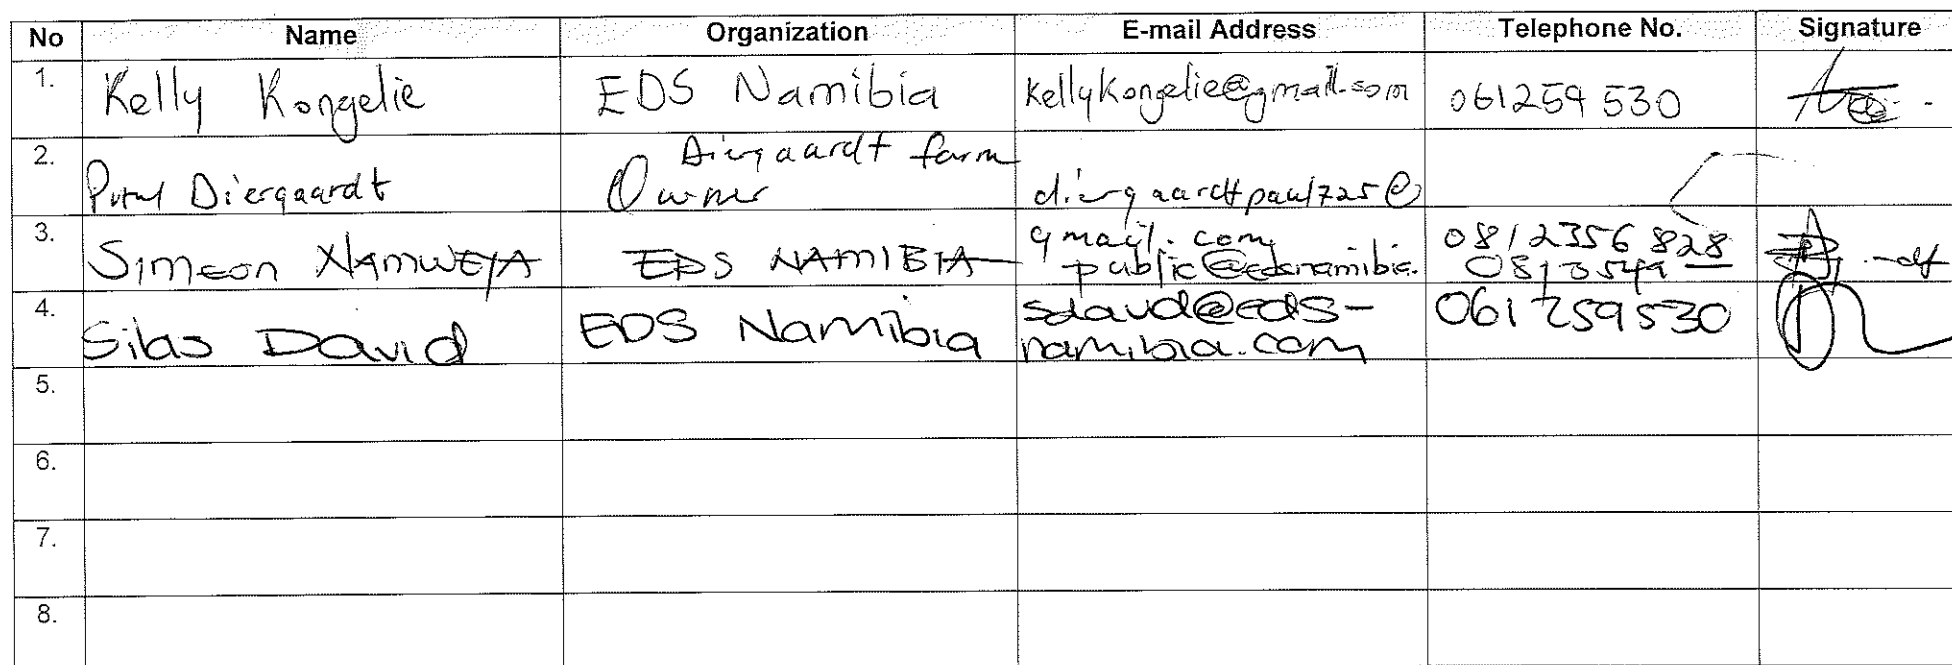 No Name Organization E-mail Address Telephone No. Signature
1. Kelly Kongelie EDS Namibia kellykongelie@gmail.com 061259530
Diergaardt farm
2. Paul Diergaardt Owner diergaardtpaul725@
gmail.com 0812356828
3. Simeon NAMWEYA EDS NAMIBIA public@edsnamibia.
4. Silas David EDS Namibia sdavid@eds- 061259530
namibia.com
5.
6.
7.
8.